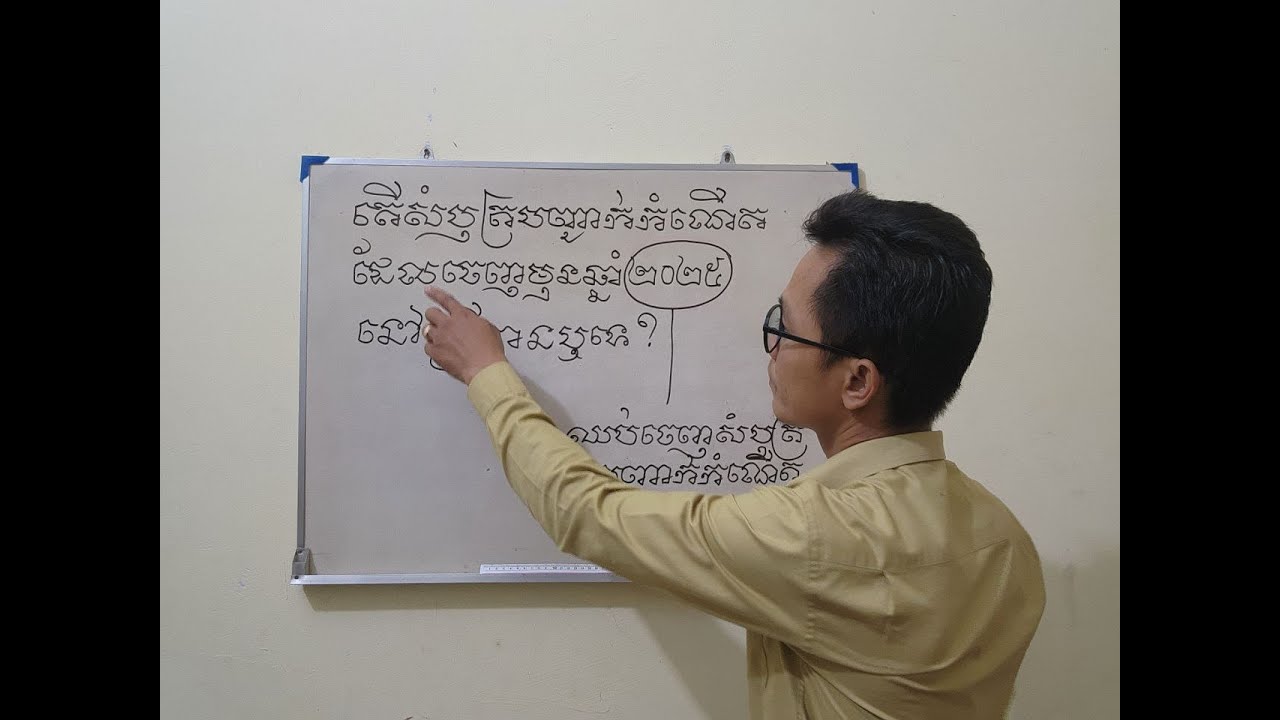 តើសំបុត្របញ្ជាក់កំណើត
ដែលចេញមុនឆ្នាំ២០២៥
នៅ បានឬទេ?
ឈប់ចេញសំបុត្រ
បញ្ជាក់កំណើត